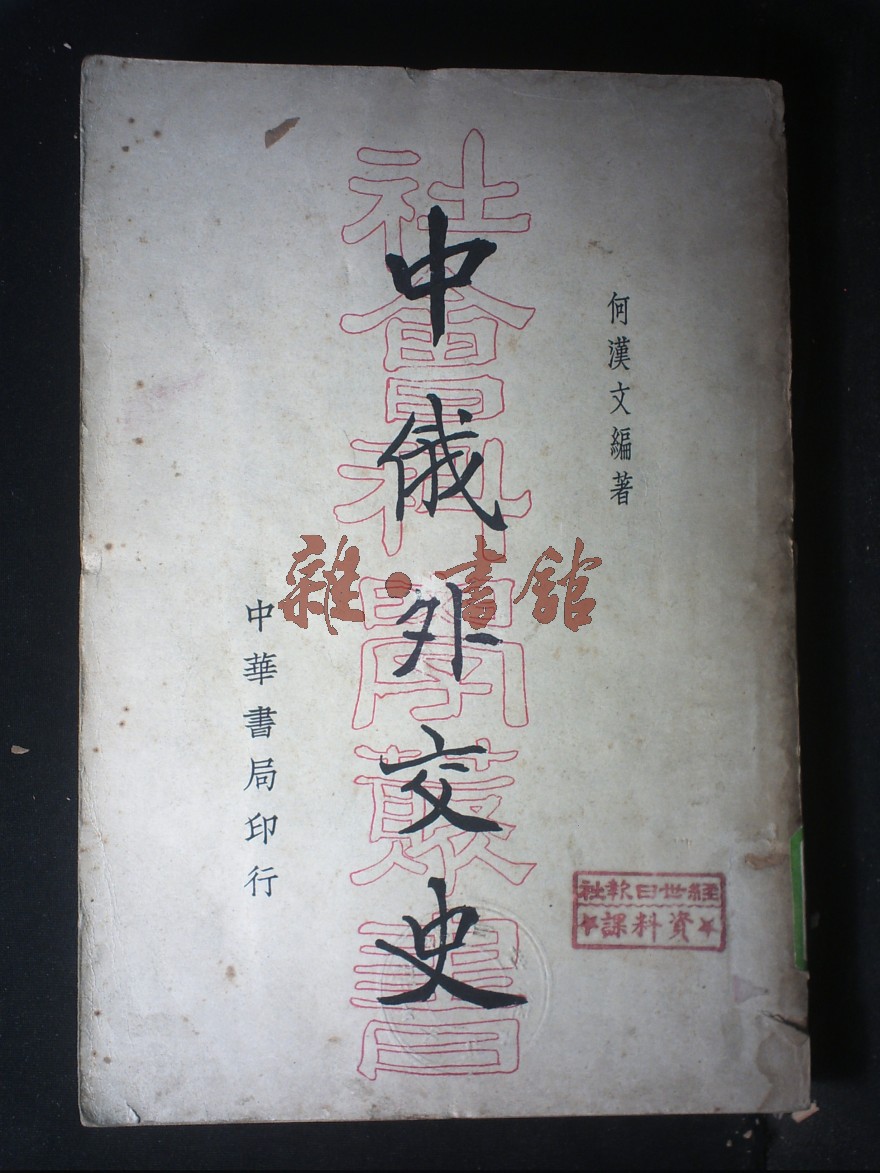 何漢文編著
中俄外交史
社會科學叢書
中華書局印行
雜·書館
經世日報社
資料課